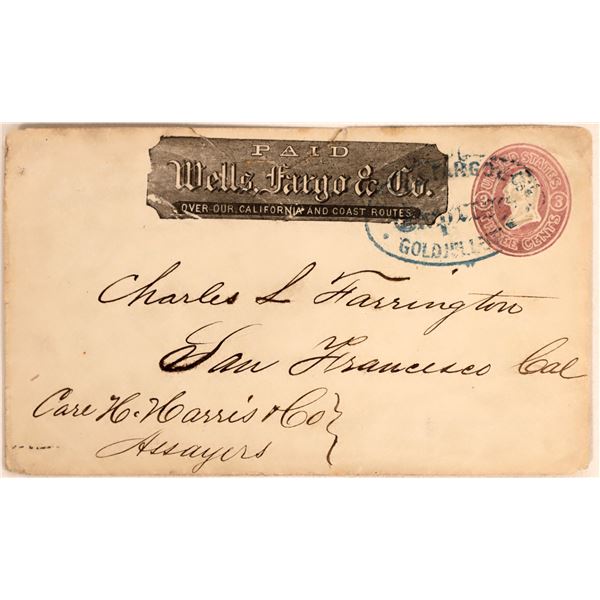 PAID
Wells, Fargo & Co.
OVER OUR CALIFORNIA AND COAST ROUTES.
FARGO & CO
GOLD HILL
UNITED STATES
3 3
THREE CENTS
Charles L Farrington
San Francisco Cal
Care H. Harris & Co
Assayers